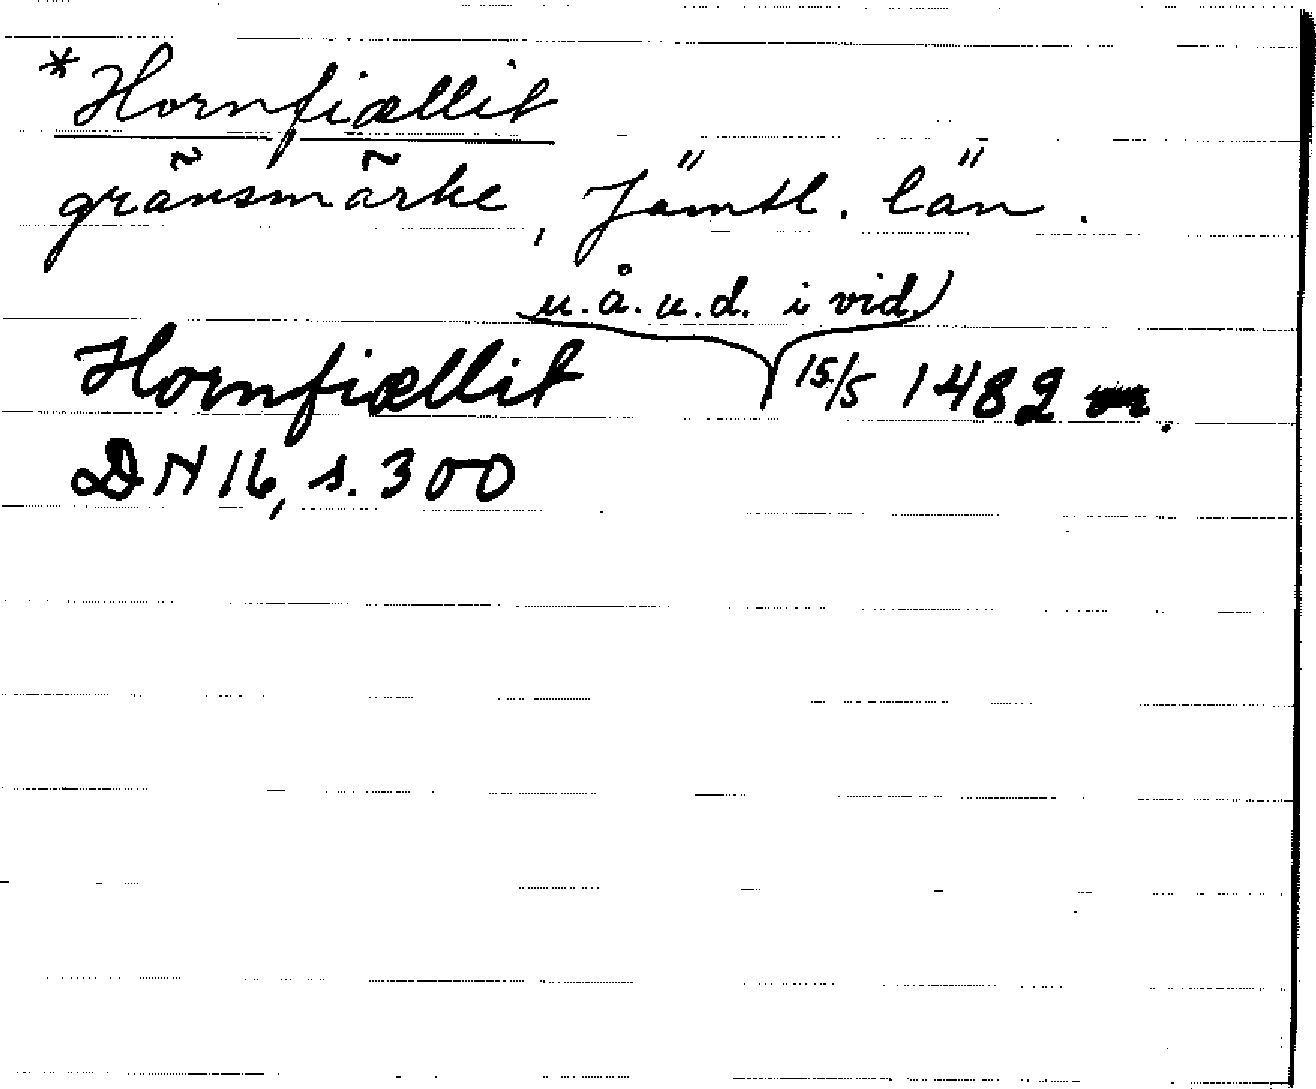 *Hornfiællit
gränsmärke, Jämtl. län.
u.å.u.d. i vid.
Hornfiællit 15/5 1482.
DN 16, s. 300